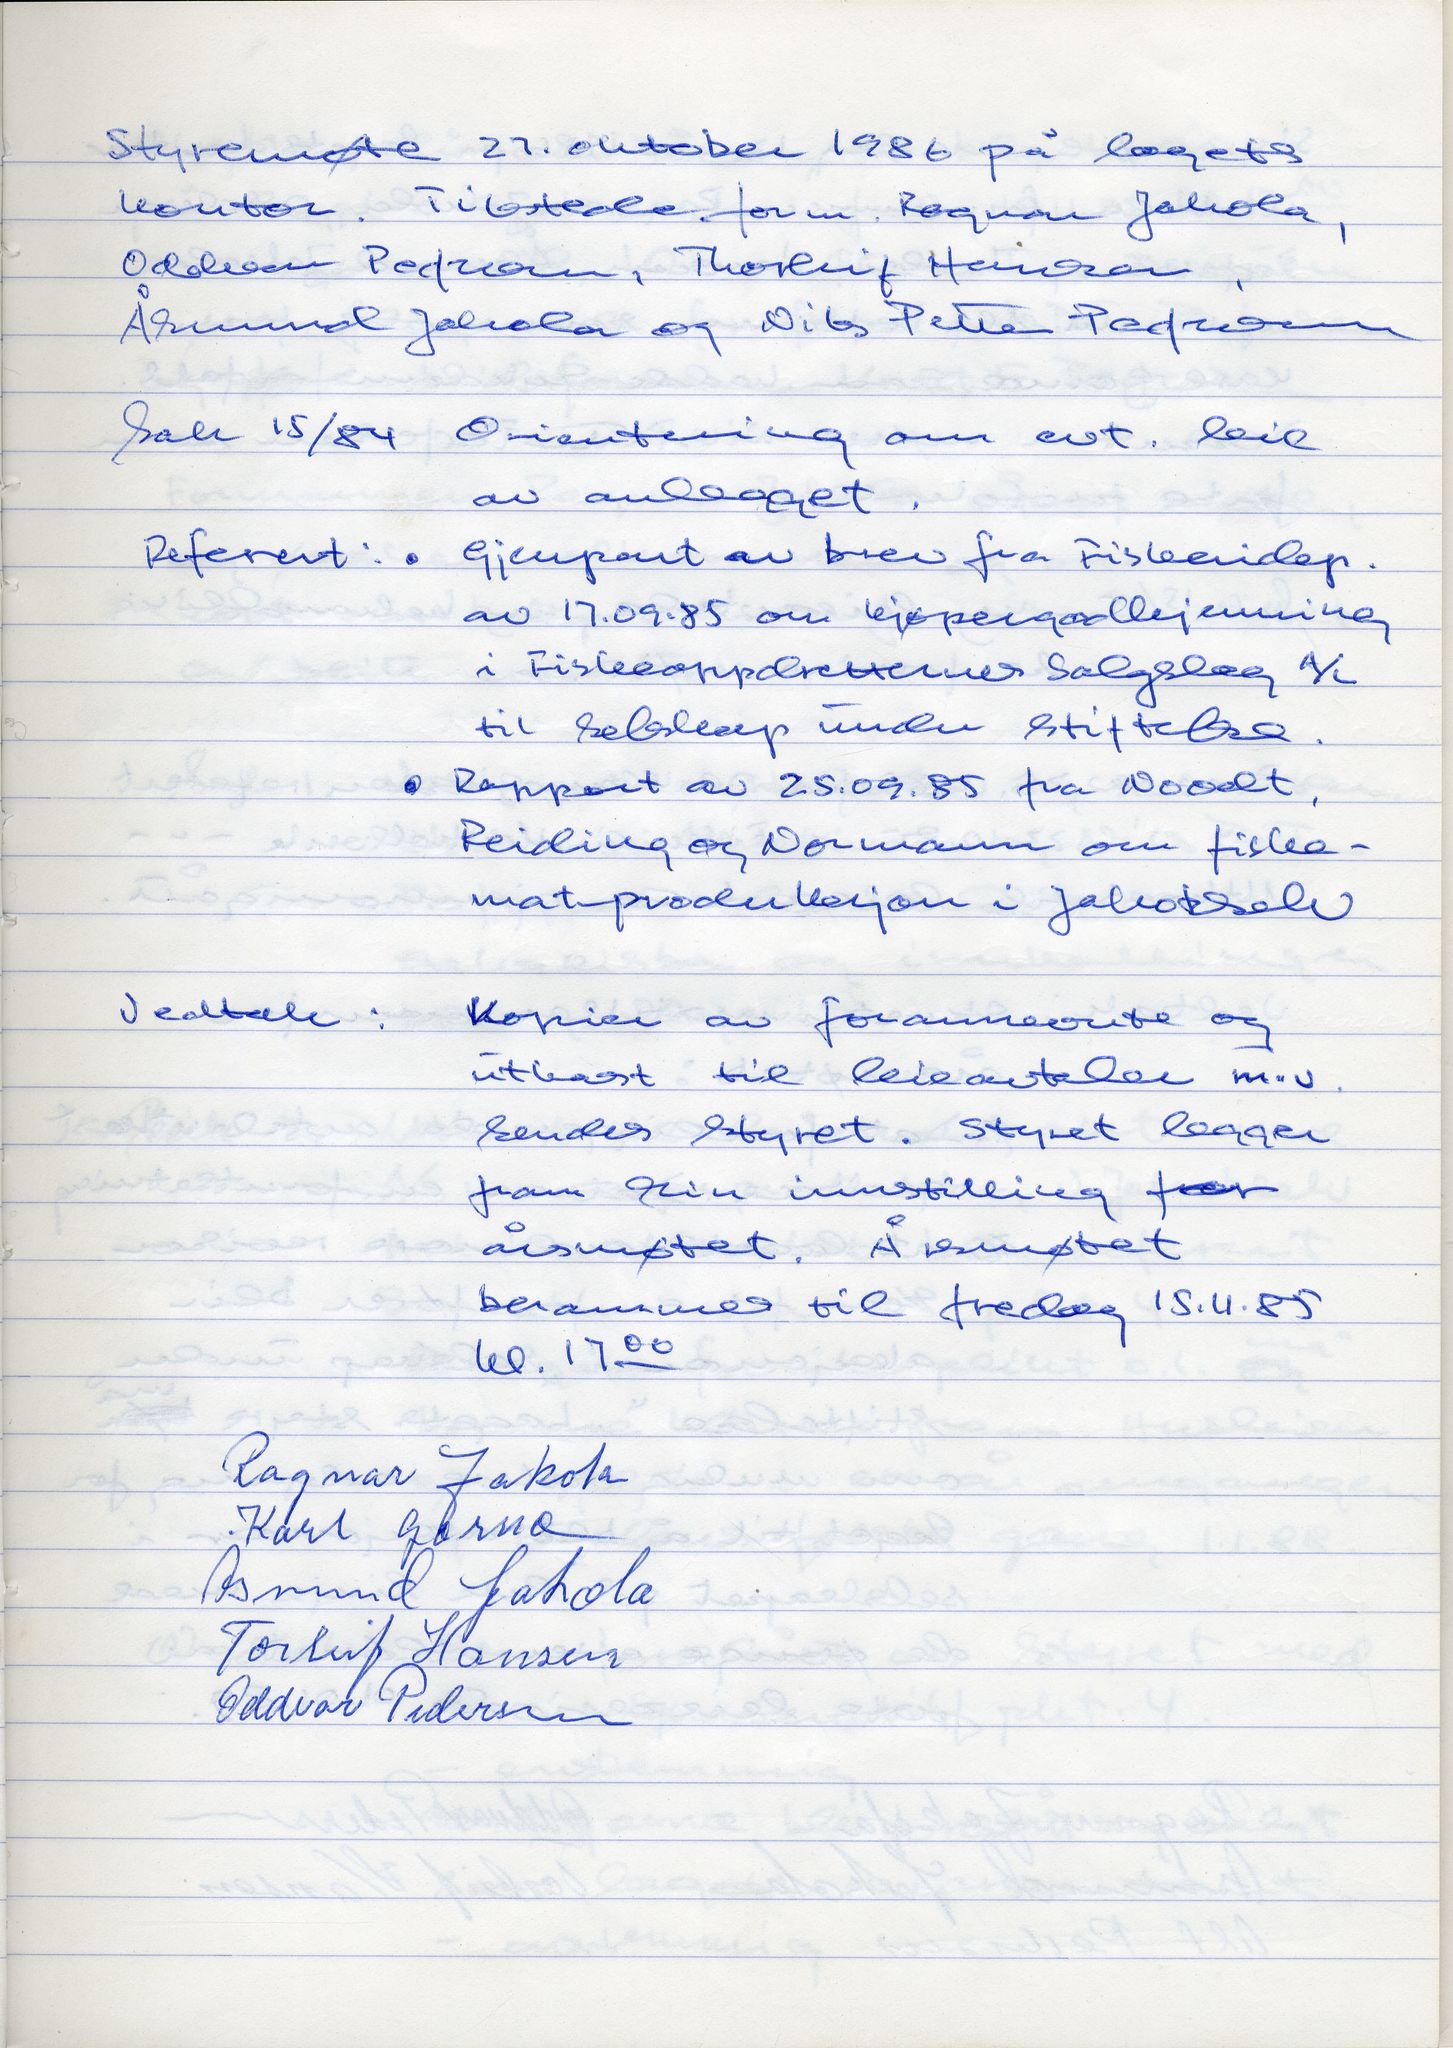 Styremøte 27. oktober 1986 på lagets
kontor. Tilstede form. Ragnar Jakola,
Oddvar Pedersen, Thorleif Hansen,
Åsmund Jakola og Nils Petter Pedersen
Sak 15/84 Orientering om evt. leie
av anlegget.
Referert: • Gjenpart av brev fra Fiskeridep.
av 17.09.85 om kjøpergodkjenning
i Fiskeoppdretternes Salgslag A/L
til selskap under stiftelse.
• Rapport av 25.09.85 fra Noodt,
Reiding og Normann om fiske-
mat-produksjon i Jakobselv
Vedtak: Kopier av forannevnte og
utkast til leieavtaler m.v.
sendes styret. Styret legger
fram sin innstilling for
årsmøtet. Årsmøtet
berammes til fredag 15.11.85
kl. 17 00
Ragnar Jakola
Karl
Åsmund Jakola
Torleif Hansen
Oddvar Pedersen